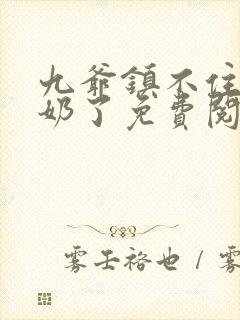 九爷镇不住
奶了免費閱
雾壬裕也 / 雾